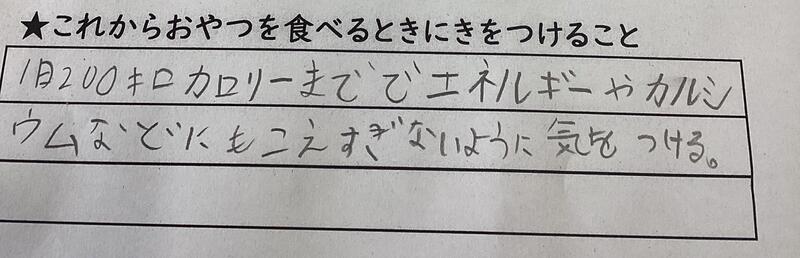 ★これからおやつを食べるときにきをつけること
1日200キロカロリーまでで エネルギーやカルシ
ウムなどにもこえすぎないように気をつける。